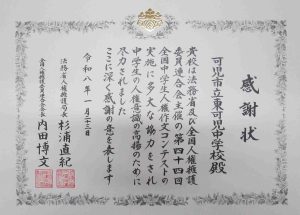 感謝状
可児市立東可児中学校殿
貴校は法務省及び全国人権擁護
委員連合会主催の第四十四回
全国中学生人権作文コンテストの
実施に多大な協力をされ
中学生の人権意識の高揚のために
尽力されました
ここに深く感謝の意を表します
令和八年一月二十三日
法務省人権擁護局長 杉浦直紀
全国人権擁護委員連合会会長 内田博文